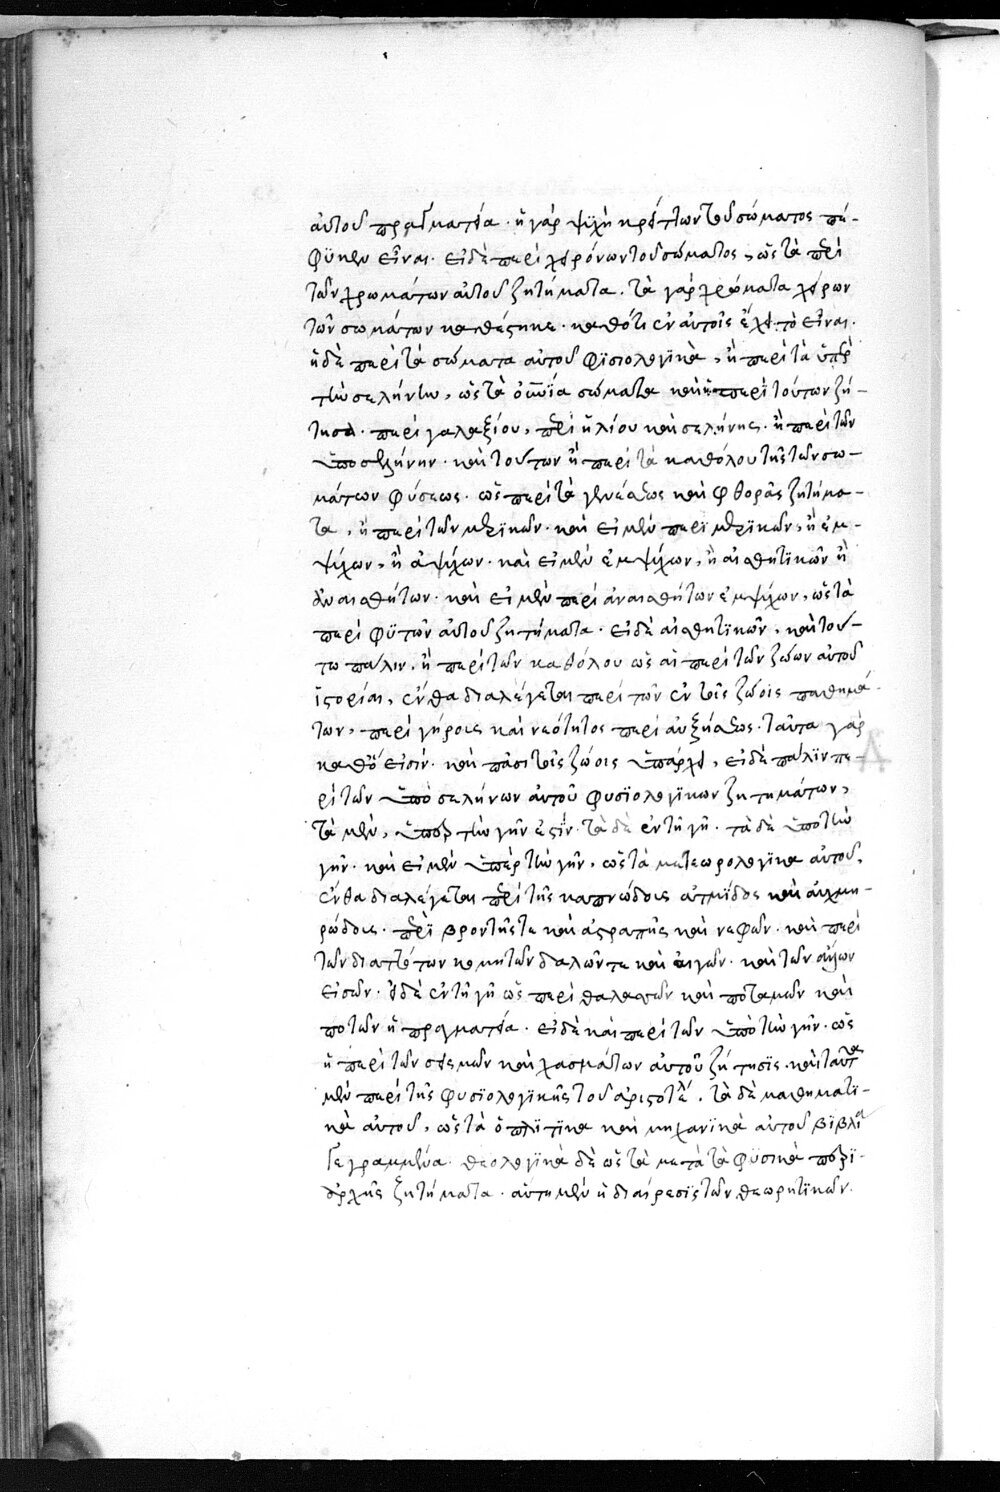 αὐτοῦ πραγματεία· ἡ γὰρ ψυχὴ κρείττων τοῦ σώματος πέ-
φυκεν εἶναι· εἰ δὲ περὶ χειρόνων τοῦ σώματος, ὡς τὰ περὶ
τῶν χρωμάτων αὐτοῦ ζητήματα. τὰ γὰρ χρώματα χείρων
τῶν σωμάτων καθέστηκε· καθότι ἐν αὐτοῖς ἔχει τὸ εἶναι.
ἢ δὲ περὶ τὰ σώματα αὐτοῦ φυσιολογικὰ, ἢ περὶ τὰ ὑπὲρ
τὴν σελήνην, ὡς τὰ οὐράνια σώματα καὶ περὶ τούτων ζή-
τησει· περὶ γαλαξίου, περὶ ἡλίου καὶ σελήνης· ἢ περὶ τῶν
ὑπὸ σελήνην· καὶ τούτων ἢ περὶ τὰ καθόλου τῆς τῶν σω-
μάτων φύσεως· ὡς περὶ τὰ γενέσεως καὶ φθορᾶς ζητήμα-
τα, ἢ περὶ τῶν μερικῶν· καὶ εἰ μὲν περὶ μερικῶν, ἢ ἐμ-
ψύχων, ἢ ἀψύχων· καὶ εἰ μὲν ἐμψύχων, ἢ αἰσθητικῶν ἢ
ἀναισθήτων· καὶ εἰ μὲν περὶ ἀναισθήτων ἐμψύχων, ὡς τὰ
περὶ φυτῶν αὐτοῦ ζητήματα· εἰ δὲ αἰσθητικῶν, καὶ τοῦ-
το πάλιν, ἢ περὶ τῶν καθόλου ὡς αἱ περὶ τῶν ζώων αὐτοῦ
ἱστορίαι, ἔνθα διαλέγεται περὶ τῶν ἐν τοῖς ζώοις παθημά-
των, περὶ γήρους καὶ νεότητος περὶ αὐξήσεως· ταῦτα γὰρ
καθό εἰσιν· καὶ πᾶσι τοῖς ζώοις ὑπάρχει, εἰ δὲ πάλιν πε-
ρὶ τῶν ὑπὸ σελήνων αὐτοῦ φυσιολογικων ζητημάτων,
τὰ μὲν, ὑπὲρ τὴν γῆν ἐστίν· τὰ δὲ ἐν τῇ γῇ· τὰ δὲ ὑπὸ τὴν
γῆν· καὶ εἰ μὲν ὑπὲρ τὴν γῆν, ὡς τὰ μετεωρολογικα αὐτοῦ,
ἔνθα διαλέγεται περὶ τῆς καπνώδους ἀτμίδος καὶ αὐχμη-
ρώδους· περὶ βροντῆς τε καὶ ἀστραπῆς καὶ νεφῶν· καὶ περὶ
τῶν διαττόντων κομητῶν δαλῶν τε καὶ αἰγῶν· καὶ τῶν ἄλλων
εἰσῶν· εἰ δὲ ἐν τῇ γῇ ὡς περὶ θαλασσῶν καὶ ποταμῶν καὶ
ποτῶν ἡ πραγματεία· εἰ δὲ καὶ περὶ τῶν ὑπὸ τὴν γῆν· ὡς
ἡ περὶ τῶν σεισμῶν καὶ χασμάτων αὐτοῦ ζήτησις· καὶ ταῦτα
μὲν περὶ τῆς φυσιολογικῆς τοῦ ἀριστοτέλ. τὰ δὲ μαθηματι-
κὰ αὐτοῦ, ὡς τὰ ὀπτικα καὶ μηχανικὰ αὐτοῦ βιβλία
γεγραμμένα· θεολογικὰ δὲ ὡς τὰ μετὰ τὰ φυσικὰ περὶ-
ἀρχῆς ζητήματα· αὕτη μὲν ἡ διαίρεσις τῶν θεωρητικῶν.